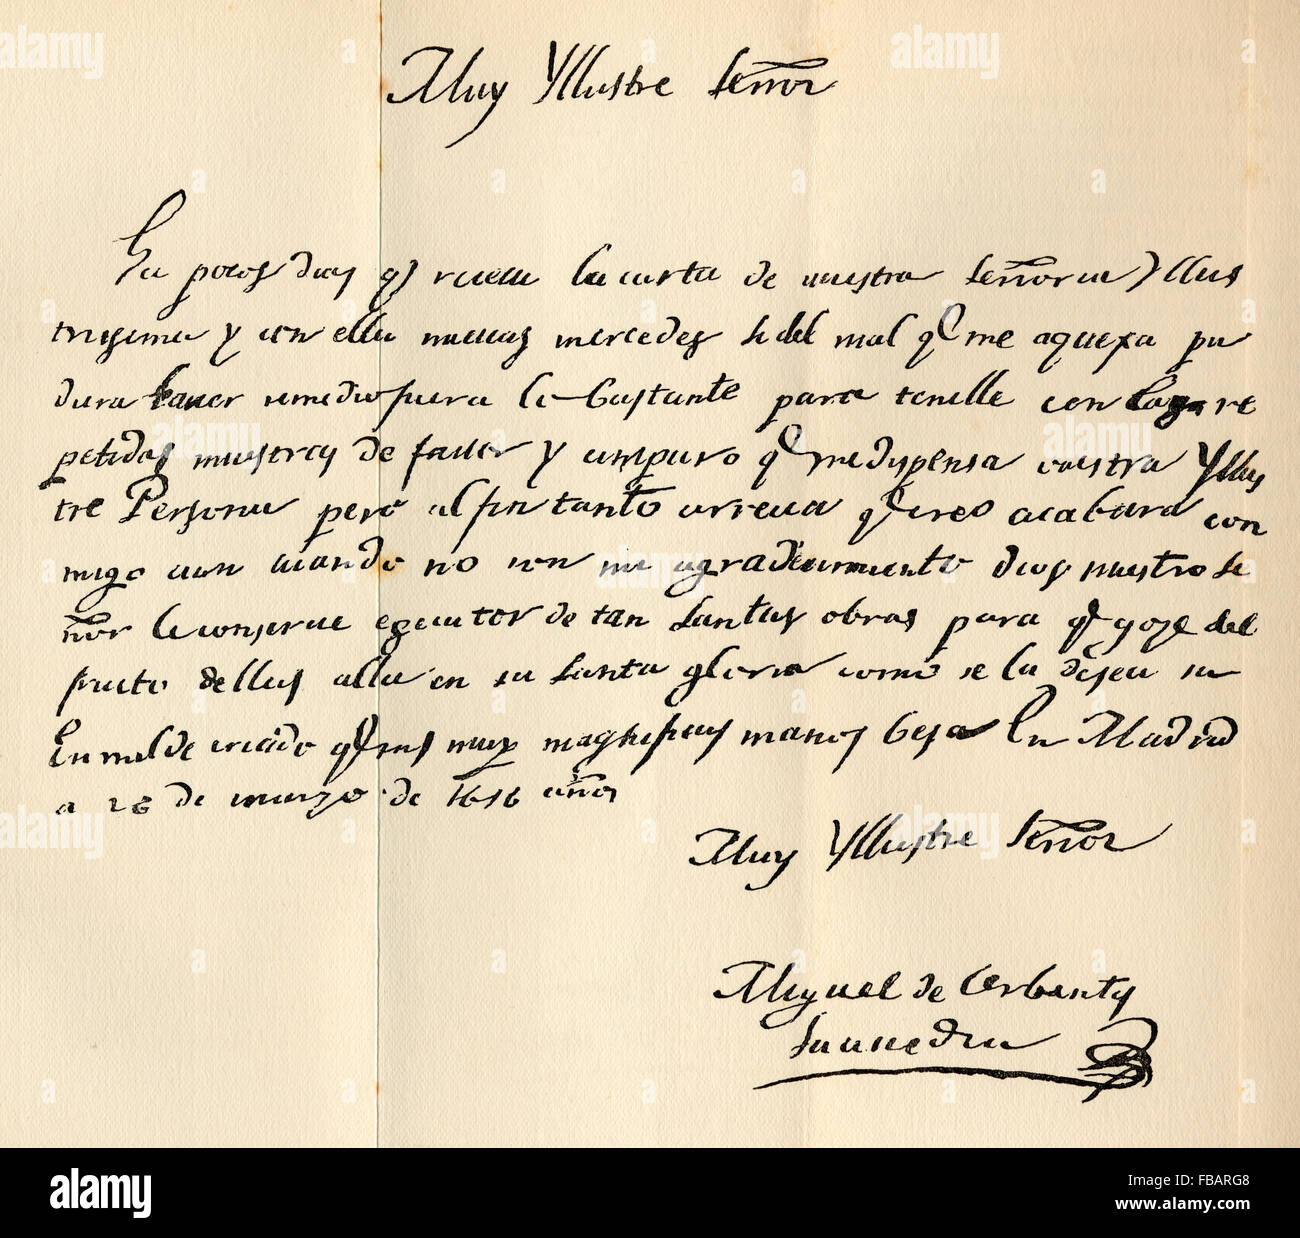 Muy Yllustre Señor
Ha pocos dias q̃ receui la carta de vuestra Señoria Yllus
trissima y con ella nueuas mercedes si del mal q̃ me aquexa pu
diera hauer remedio fuera lo bastante para tenelle con las re
petidas muestras de fauor y amparo q̃ me dispensa vuestra Yllus
tre Persona pero al fin tanto arrecia q̃ creo acabara con
migo aun cuando no con mi agradecimiento dios nuestro Se
ñor le conserue egecutor de tan santas obras para q̃ goze del
fruto dellas alla en su santa gloria como se la desea su
humilde criado q̃ sus muy magnificas manos besa En Madrid
a 26 de marzo de 1616 años
Muy Yllustre Señor
Miguel de Cerbantes
Saauedra
alamy
Image ID: FBARG8
www.alamy.com